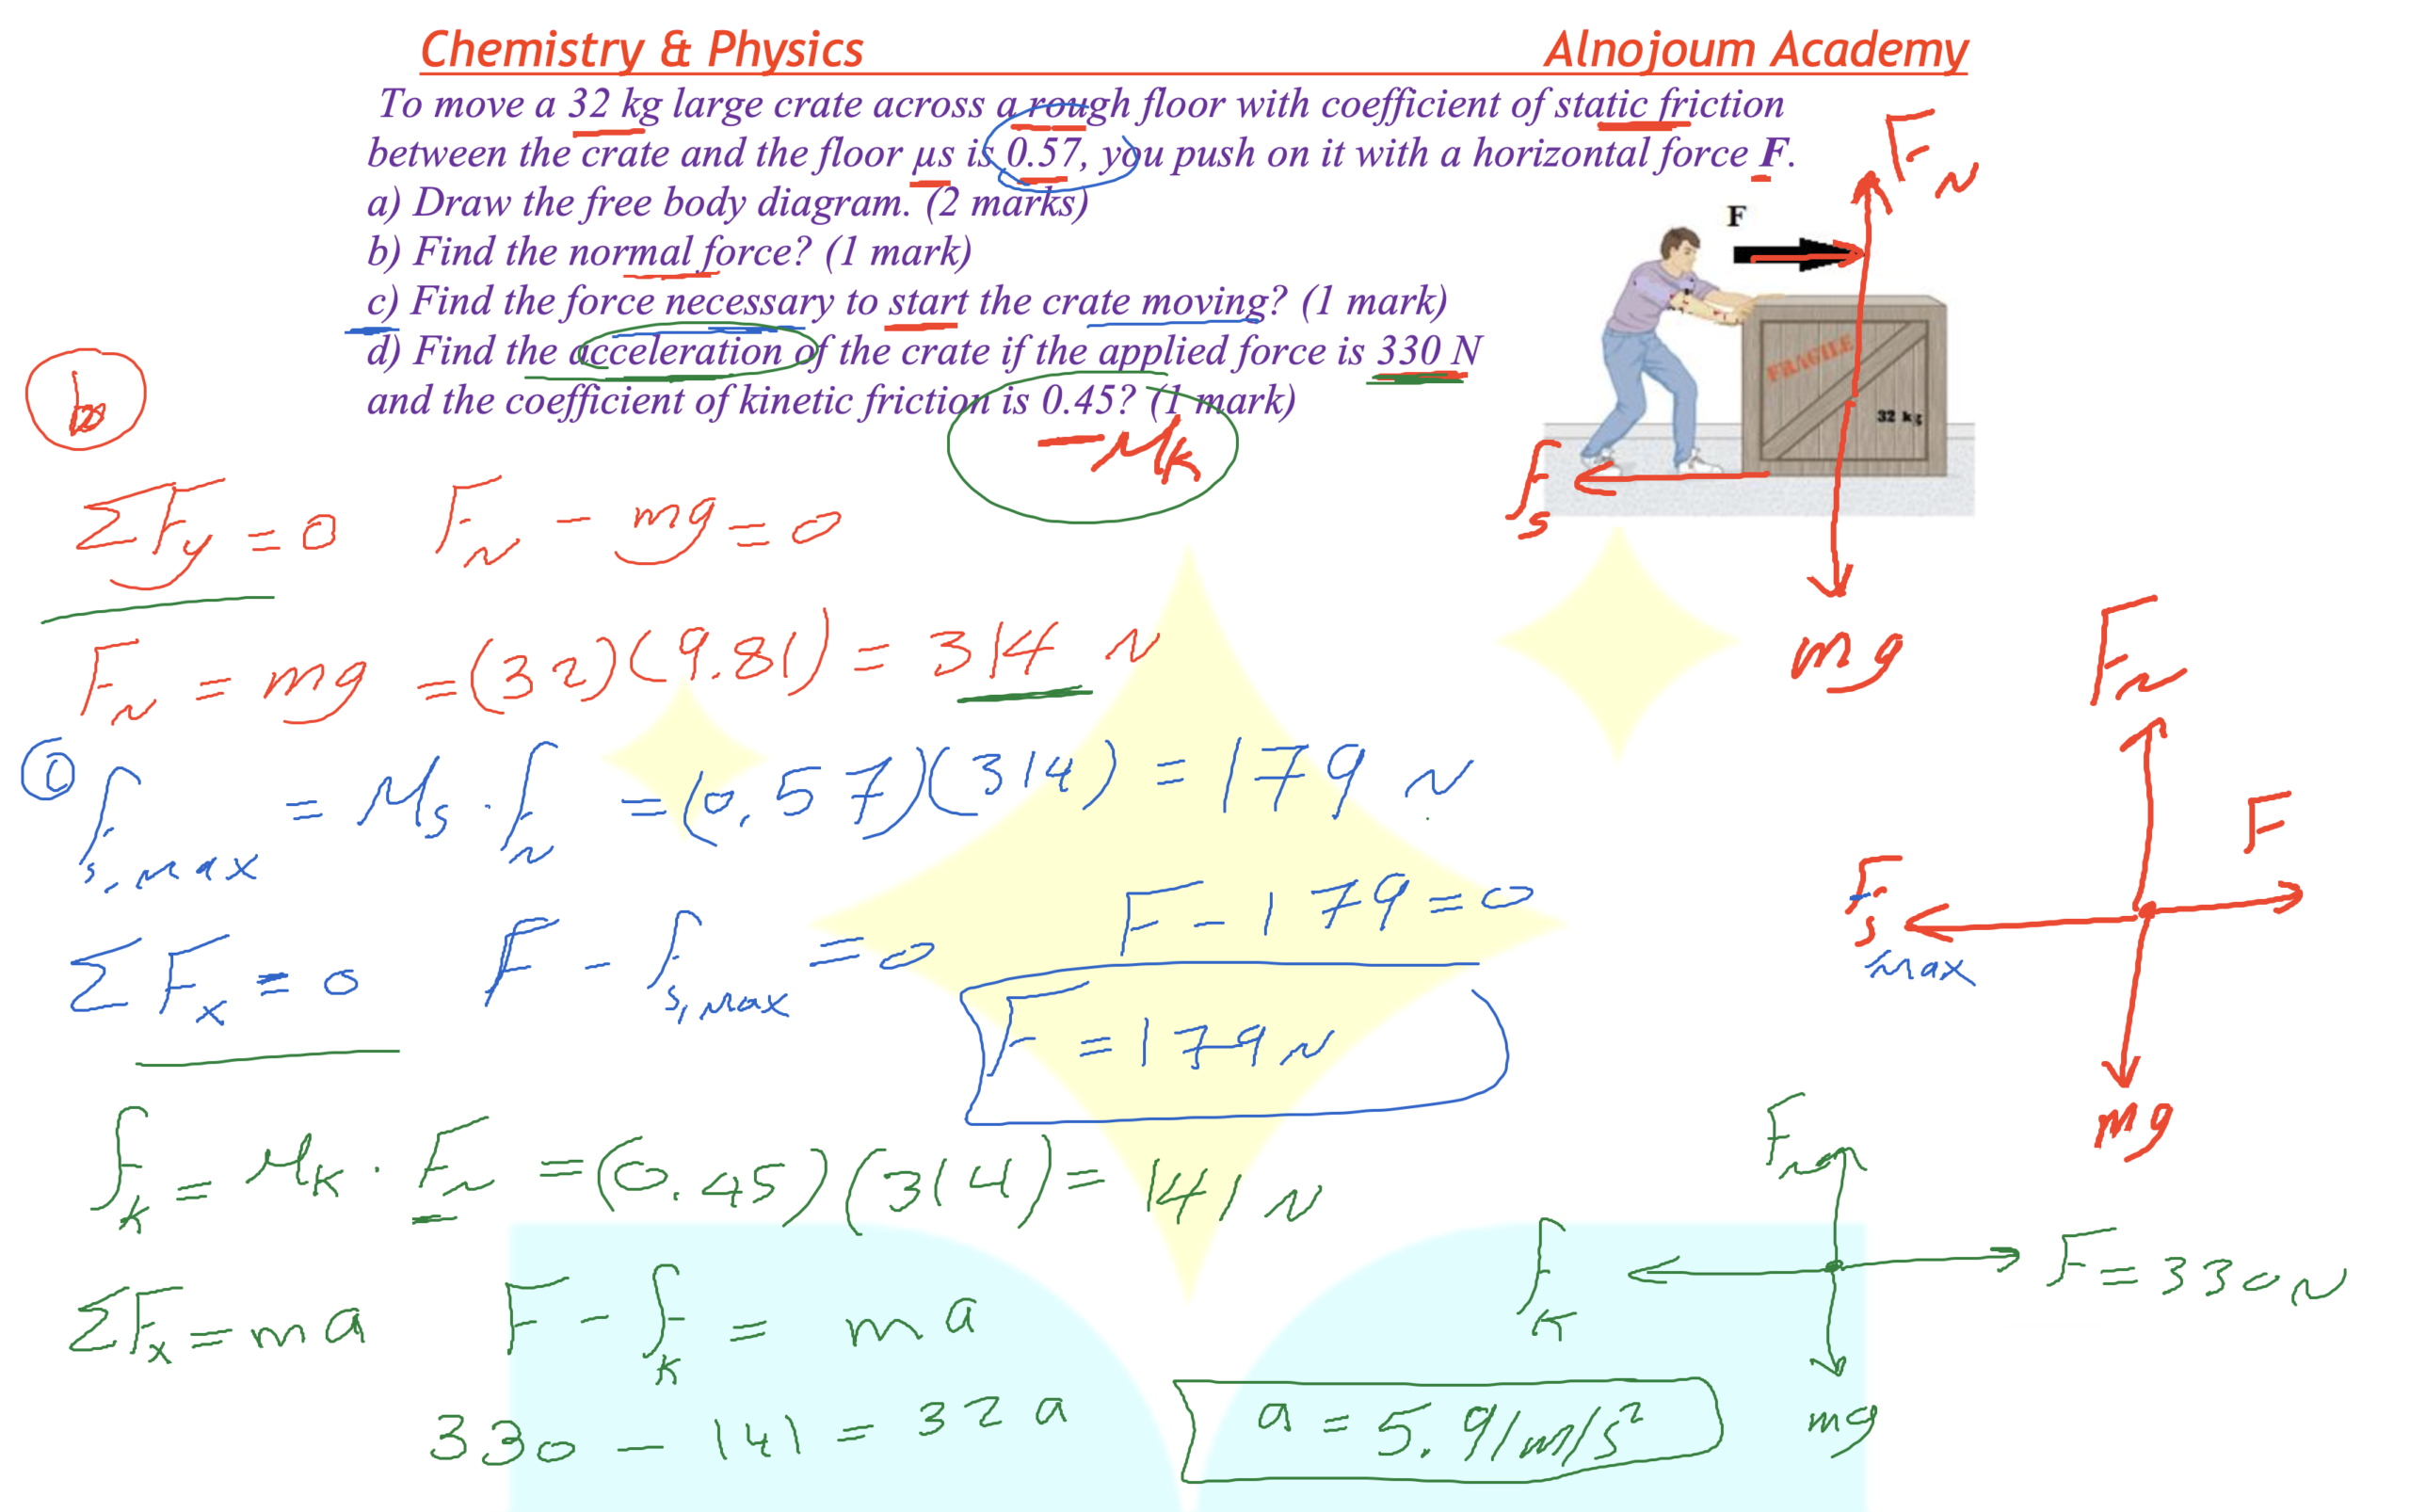 Chemistry & Physics Alnojoum Academy
To move a 32 kg large crate across a rough floor with coefficient of static friction
between the crate and the floor µs is 0.57, you push on it with a horizontal force F.
a) Draw the free body diagram. (2 marks)
b) Find the normal force? (1 mark)
c) Find the force necessary to start the crate moving? (1 mark)
d) Find the acceleration of the crate if the applied force is 330 N
and the coefficient of kinetic friction is 0.45? (1 mark)
F
F_N
FRAGILE
32 kg
f_s
mg
– μ_k
b
ΣF_y = 0 F_N – mg = 0
F_N = mg = (32)(9.81) = 314 N
F_N
F
f_s max
mg
c f_s,max = μ_s · f_N = (0.57)(314) = 179 N
ΣF_x = 0 F – f_s,max = 0 F – 179 = 0
F = 179 N
f_k = μ_k · F_N = (0.45)(314) = 141 N
F_N
f_k
F = 330 N
mg
ΣF_x = ma F – f_k = ma
330 – 141 = 32 a a = 5.91 m/s²